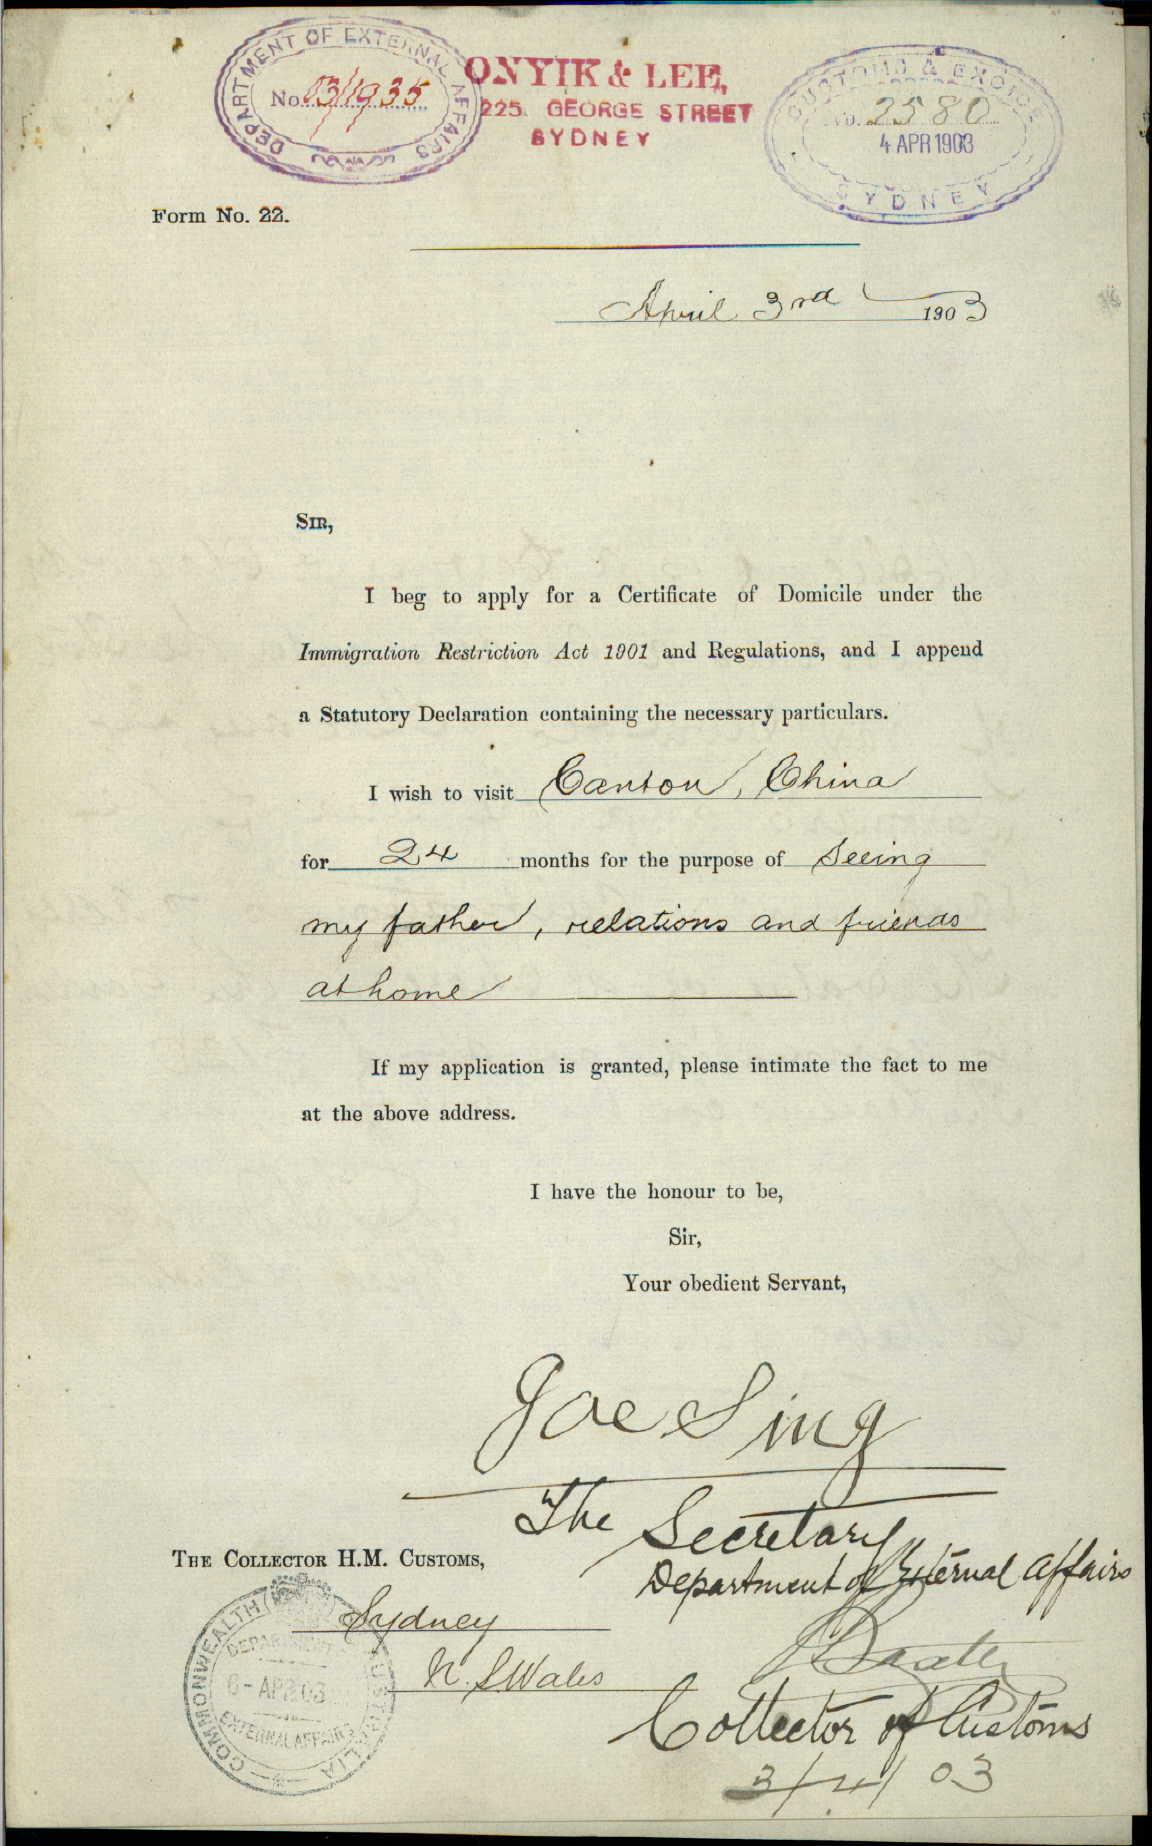 DEPARTMENT OF EXTERNAL AFFAIRS
No. 03/1935
ONYIK & LEE,
225. GEORGE STREET
SYDNEY
CUSTOMS & EXCISE
No. 2580
4 APR 1903
SYDNEY
Form No. 22.
April 3rd 1903
SIR,
I beg to apply for a Certificate of Domicile under the
Immigration Restriction Act 1901 and Regulations, and I append
a Statutory Declaration containing the necessary particulars.
I wish to visit Canton, China
for 24 months for the purpose of Seeing
my father, relations and friends
at home
If my application is granted, please intimate the fact to me
at the above address.
I have the honour to be,
Sir,
Your obedient Servant,
Goe Sing
The Secretary
Department of External Affairs
THE COLLECTOR H.M. CUSTOMS,
Sydney
N. S. Wales
COMMONWEALTH AUSTRALIA
DEPARTMENT
6-APR 03
EXTERNAL AFFAIRS
Collector of Customs
3/4/03